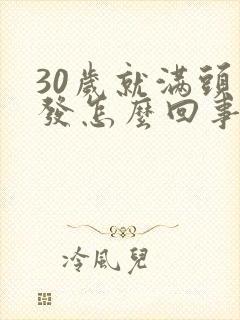 30歲就滿頭
發怎麼回事
冷風兒